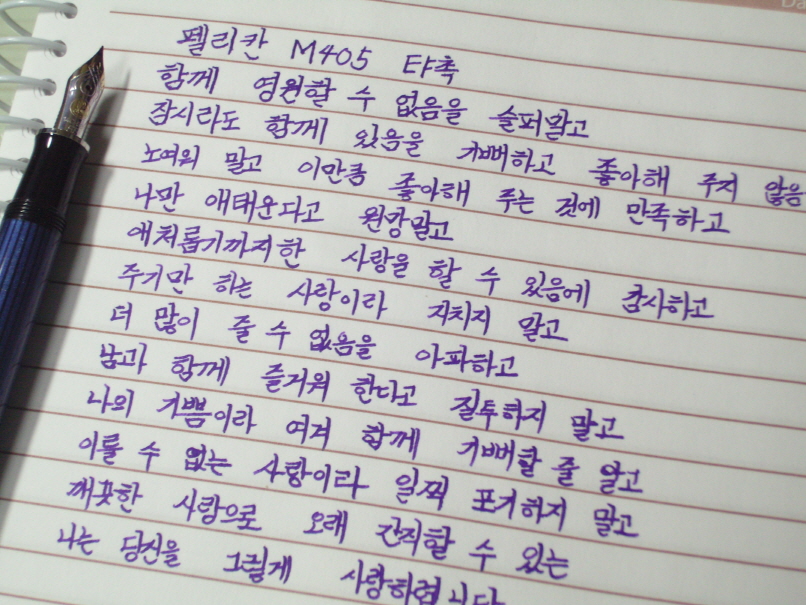 펠리칸 M405 EF촉
함께 영원할 수 없음을 슬퍼말고
잠시라도 함께 있음을 기뻐하고 좋아해 주지 않음
노여워 말고 이만큼 좋아해 주는 것에 만족하고
나만 애태운다고 원망말고
애처롭기까지한 사랑을 할 수 있음에 감사하고
주기만 하는 사랑이라 지치지 말고
더 많이 줄 수 없음을 아파하고
남과 함께 즐거워 한다고 질투하지 말고
나의 기쁨이라 여겨 함께 기뻐할 줄 알고
이룰 수 없는 사랑이라 일찍 포기하지 말고
깨끗한 사랑으로 오래 간직할 수 있는
나는 당신을 그렇게 사랑하렵니다